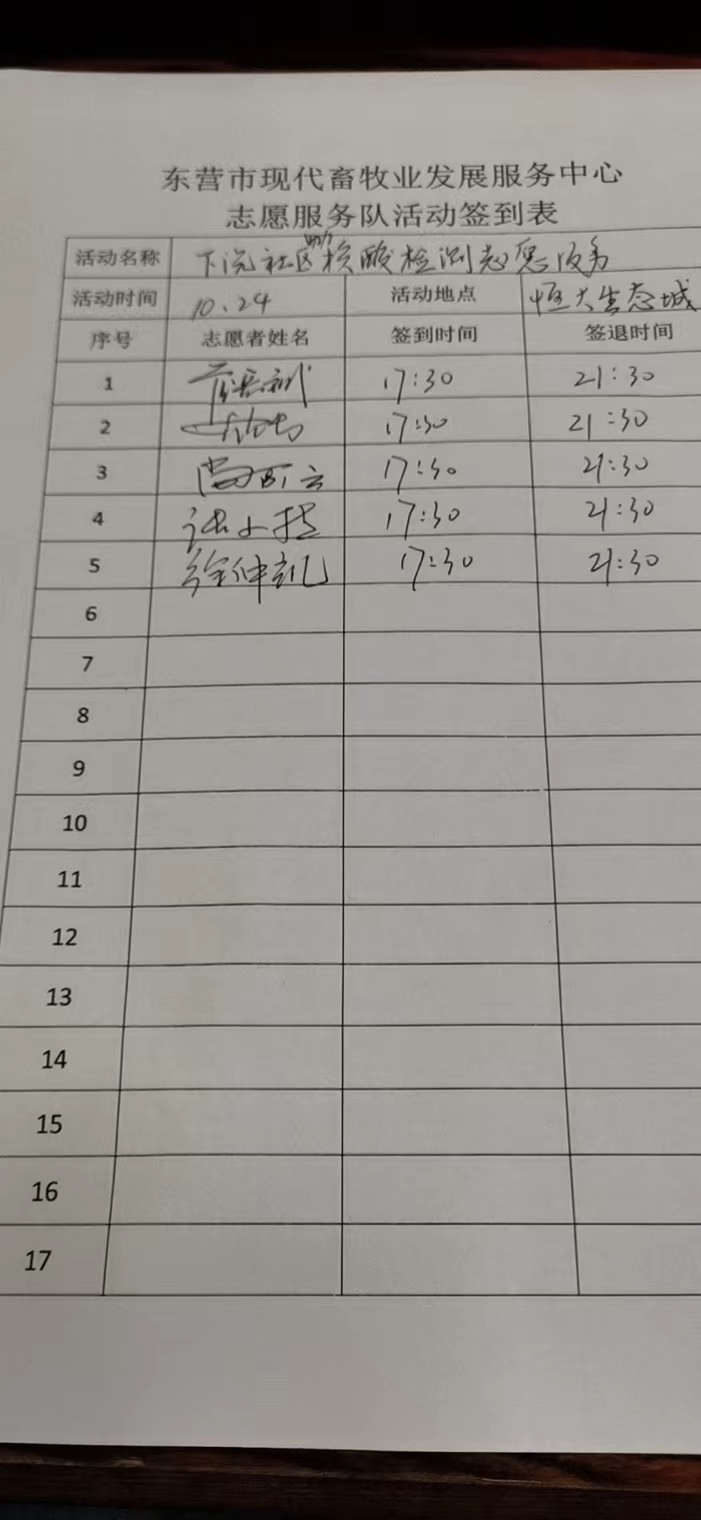 东营市现代畜牧业发展服务中心
志愿服务队活动签到表
活动名称 下沉社区协助核酸检测志愿服务
活动时间 10.24 活动地点 恒大生态城
序号 志愿者姓名 签到时间 签退时间
1 17:30 21:30
2 17:30 21:30
3 17:30 21:30
4 17:30 21:30
5 徐仲凯 17:30 21:30
6
7
8
9
10
11
12
13
14
15
16
17